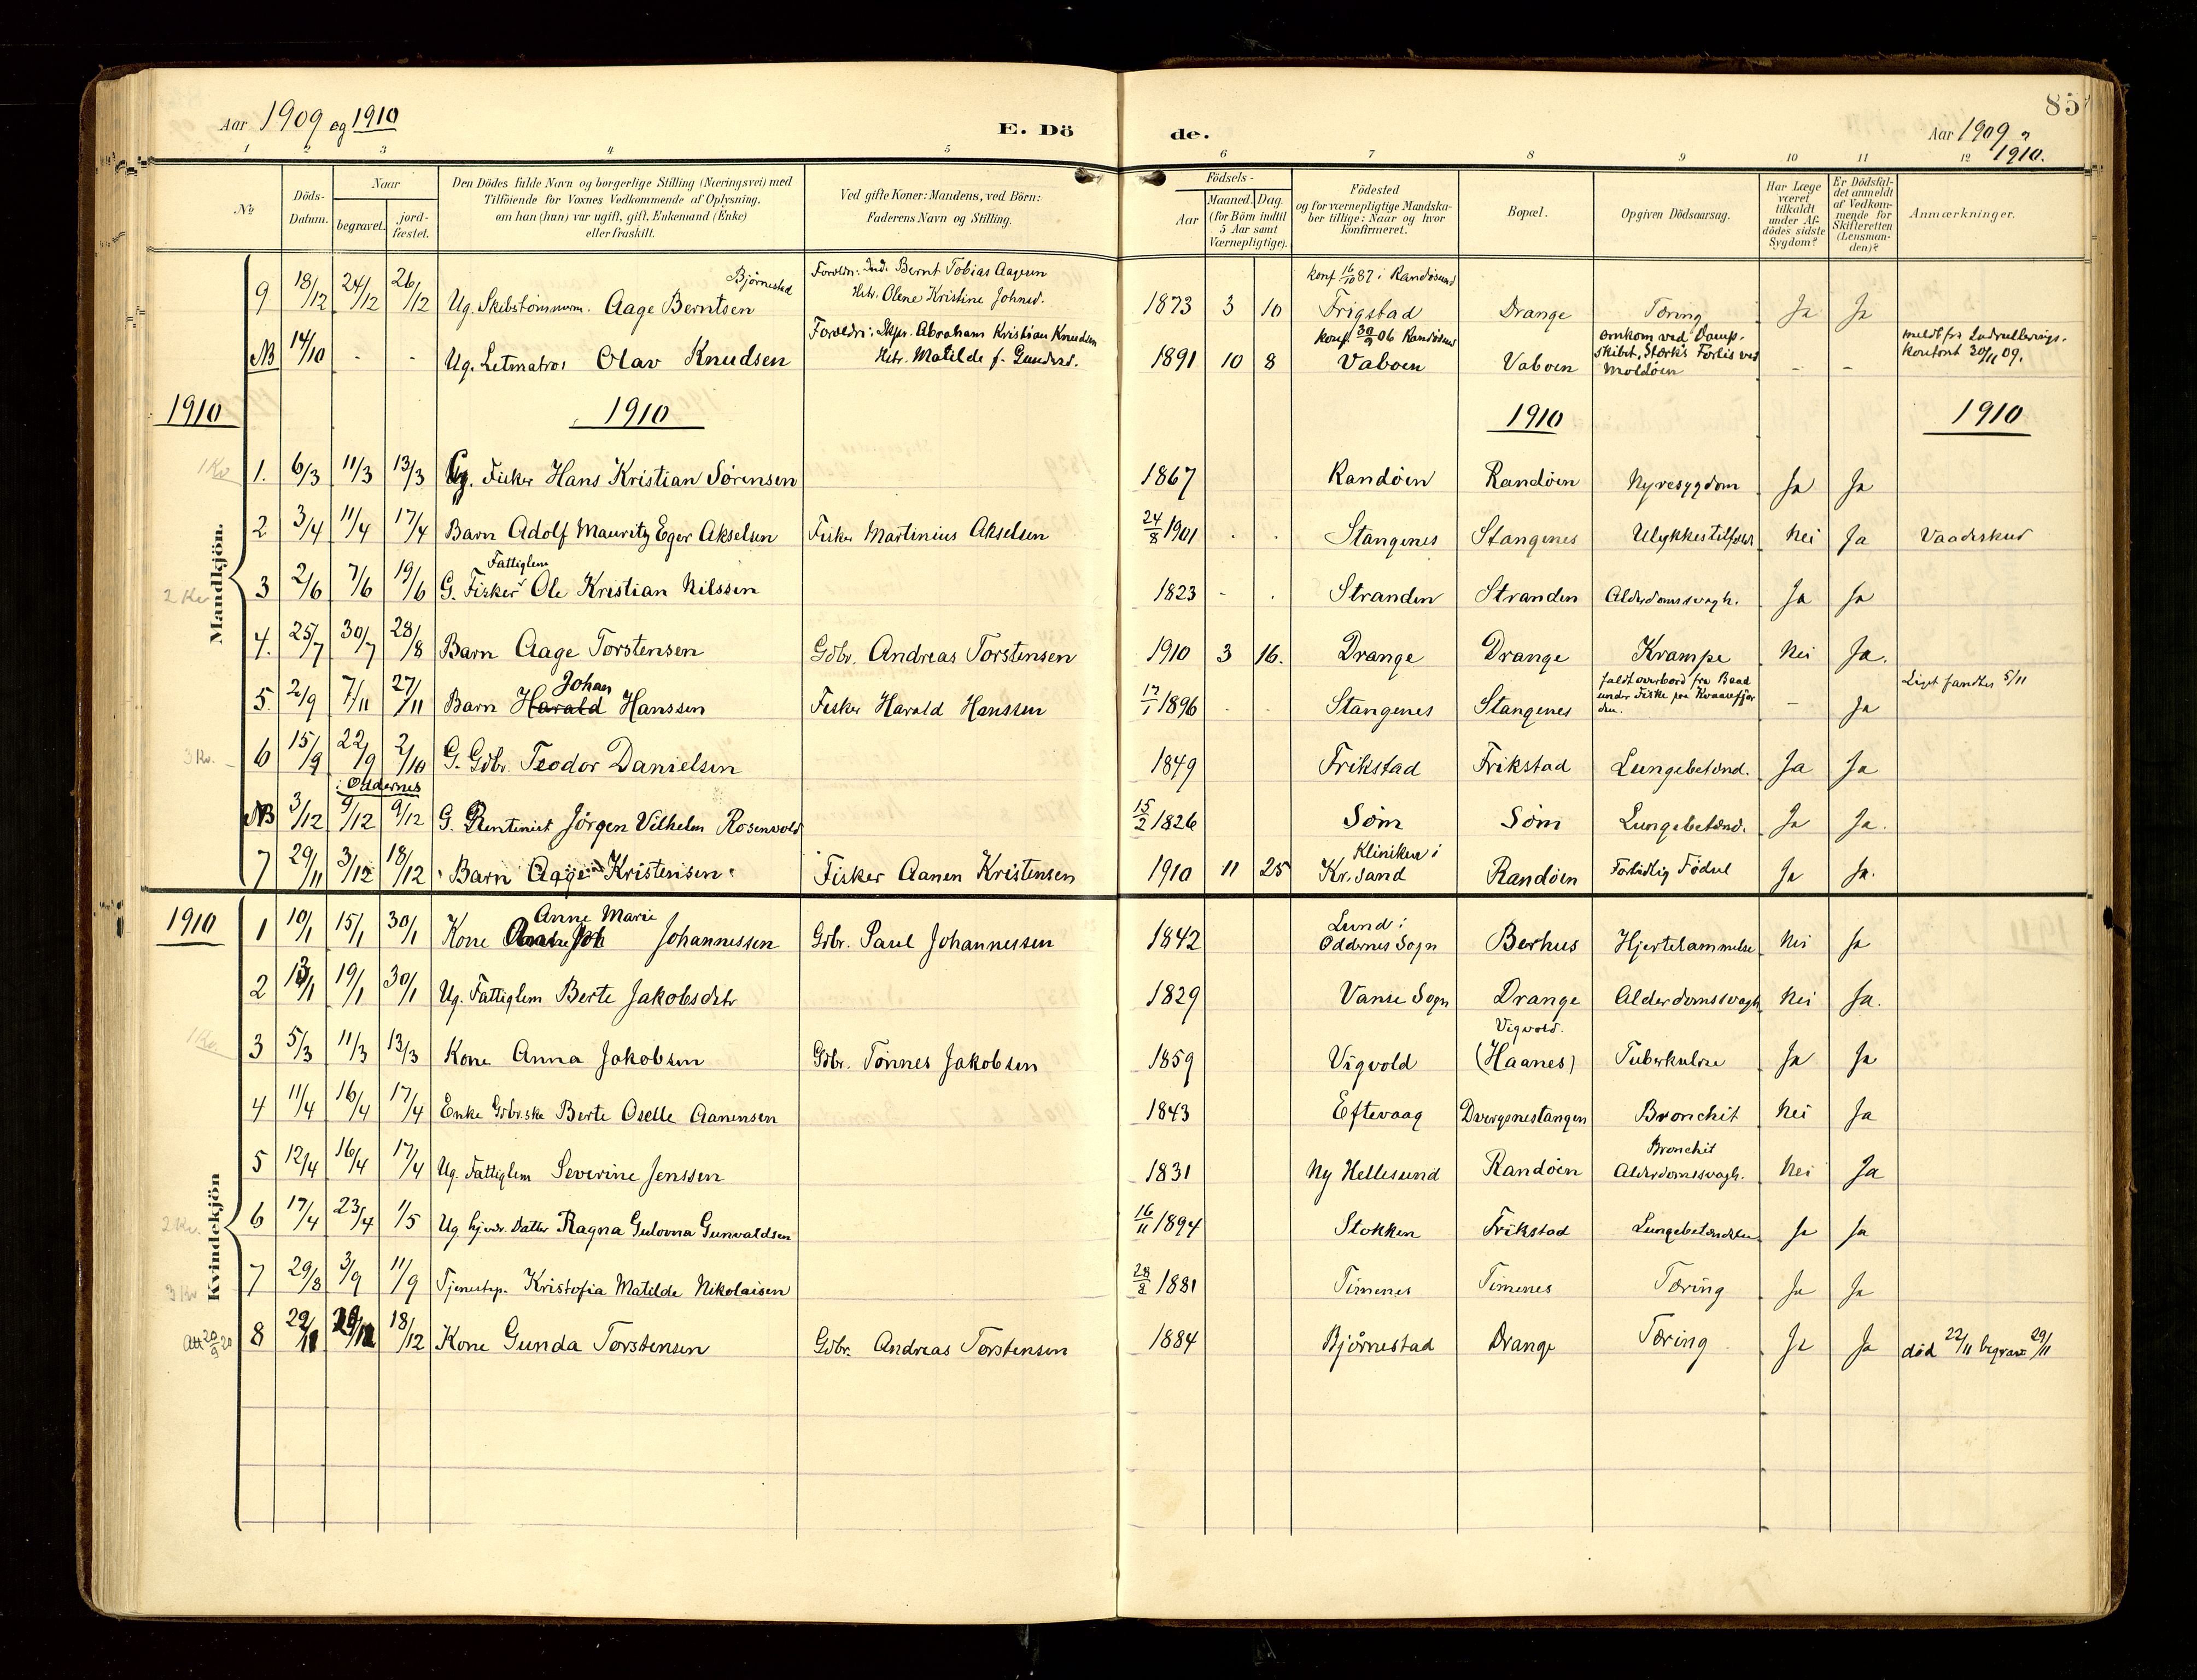 Aar 1909 og 1910
E. Dö
de.
85
Aar 1909 og
1910.
1 2 3 4 5 6 7 8 9 10 11 12
No
Döds-
Datum.
Naar
begravet.
jord-
fæstet.
Den Dödes fulde Navn og borgerlige Stilling (Næringsvei) med
Tilföiende for Voxnes Vedkommende af Oplysning,
om han (hun) var ugift, gift, Enkemand (Enke)
eller fraskilt.
Ved gifte Koner: Mandens, ved Börn:
Faderens Navn og Stilling.
Födsels-
Aar
Maaned. Dag.
(for Börn indtil
5 Aar samt
Værnepligtige).
Födested
og for værnepligtige Mandska-
ber tillige: Naar og hvor
konfirmeret.
Bopæl.
Opgiven Dödsaarsag.
Har Læge
været
tilkaldt
under Af-
dödes sidste
Sygdom?
Er Dödsfal-
det anmeldt
af Vedkom-
mende for
Skifteretten
(Lensman-
den)?
Anmærkninger.
Bjørnestad
Forældr: Ind. Bernt Tobias Aagesen
konf 16/10 87 i Randøsund
9 18/12 24/12 26/12 Ug. Skibstømmerm. Aage Berntsen Hstr. Olene Kristine Johnsd. 1873 3 10 Frigstad Drange Tæring Ja Ja
Forældr: Skpr. Abraham Kristian Knudsen
konf. 30/9 06 Randøsund
omkom ved Damp-
skibet "Stærk's Forlis ved
Moldöen
meldt fra Indrullerings-
kontoret 30/11 09.
NB 14/10 - - Ug. Letmatros Olav Knudsen Hstr. Matilde f. Gundersd. 1891 10 8 Vaboen Vaboen - -
1910 1910 1910 1910
Mandkjön.
1 Kv
1. 6/3 11/3 13/3 Ug. Fisker Hans Kristian Sørensen 1867 Randöen Randöen Nyresygdom Ja Ja
2 3/4 11/4 17/4 Barn Adolf Mauritz Eger Akselsen Fisker Martinius Akselsen 24/8 1901 . . Stangenes Stangenes Ulykkestilfælde Nei Ja Vaadeskud
Fattiglem
2 Kv
3 2/6 7/6 19/6 G. Fisker Ole Kristian Nilssen 1823 - . Stranden Stranden Alderdomssvagh. Ja Ja
4. 25/7 30/7 28/8 Barn Aage Torstensen Gdbr. Andreas Torstensen 1910 3 16. Drange Drange Krampe Nei Ja.
Johan
faldt overbord fra Baad
under Fiske paa Kvaasefjor
den.
Liget fandtes 5/11
5. 2/9 7/11 27/11 Barn Harald Hanssen Fisker Harald Hanssen 17/1 1896 . . Stangenes Stangenes - Ja
3 Kv.
6 15/9 22/9 2/10 G. Gdbr. Teodor Danielsen 1849 Frikstad Frikstad Lungebetænd. Ja Ja
i Oddernes
NB 3/12 9/12 9/12 G. Rentenist Jörgen Vilhelm Rosenvold 15/2 1826 Söm Söm Lungebetænd. Ja Ja.
Kliniken i
7 29/11 3/12 18/12 Barn Aage Kristensen Fisker Aanen Kristensen 1910 11 25 Kr.sand Randöen Fortidlig Födsel Ja Ja.
1910
Kvindekjön
Anne Marie
Lund i
1 10/1 15/1 30/1 Kone Johannessen Gdbr. Paul Johannessen 1842 Oddernes Sogn Berhus Hjertelammelse Nei Ja
2 13/1 19/1 30/1 Ug. Fattiglem Berte Jakobsdtr 1829 Vanse Sogn Drange Alderdomssvagh Nei Ja.
Vigvold.
1 Kv.
3 5/3 11/3 13/3 Kone Anna Jakobsen Gdbr. Tönnes Jakobsen 1859 Vigvold (Haanes) Tuberkulose Ja Ja
4 11/4 16/4 17/4 Enke Gdbr.ske Berte Oselle Aanensen 1843 Eftevaag Dvergsnestangen Bronchit Nei Ja
Bronchit
5 12/4 16/4 17/4 Ug. Fattiglem Severine Jenssen 1831 Ny Hellesund Randöen Alderdomssvagh. Nei Ja
2 Kv.
6 17/4 23/4 1/5 Ug. hjemv. Datter Ragna Gulovna Gunvaldsen 16/11 1894 Stokken Frikstad Lungebetændelse Ja Ja
3 Kv
7 29/8 3/9 11/9 Tjenestep. Kristofia Matilde Nikolaisen 28/2 1881 Timenes Timenes Tæring Ja Ja
Att 20/9 20
8 22/11 29/11 18/12 Kone Gunda Torstensen Gdbr. Andreas Torstensen 1884 Bjørnestad Drange Tæring Ja Ja död 22/11 begravet 29/11